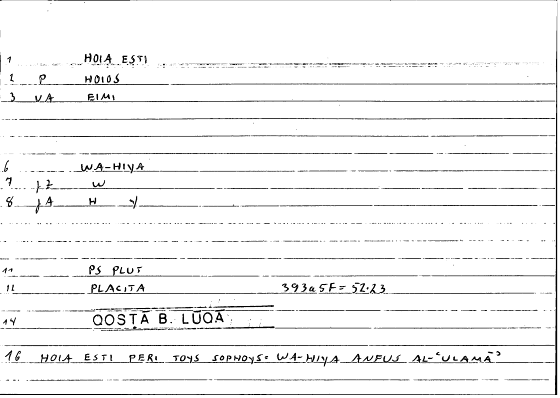 1 HOIA ESTI
2 P HOIOS
3 VA EIMI
6 WA-HIYA
7 J2 W
8 JA H Y
11 PS PLUT
12 PLACITA 393a5F = 52.23
14 QOSṬĀ B. LŪQĀ
16 HOIA ESTI PERI TOYS SOPHOYS = WA-HIYA ANFUS AL-ʿULAMĀʾ